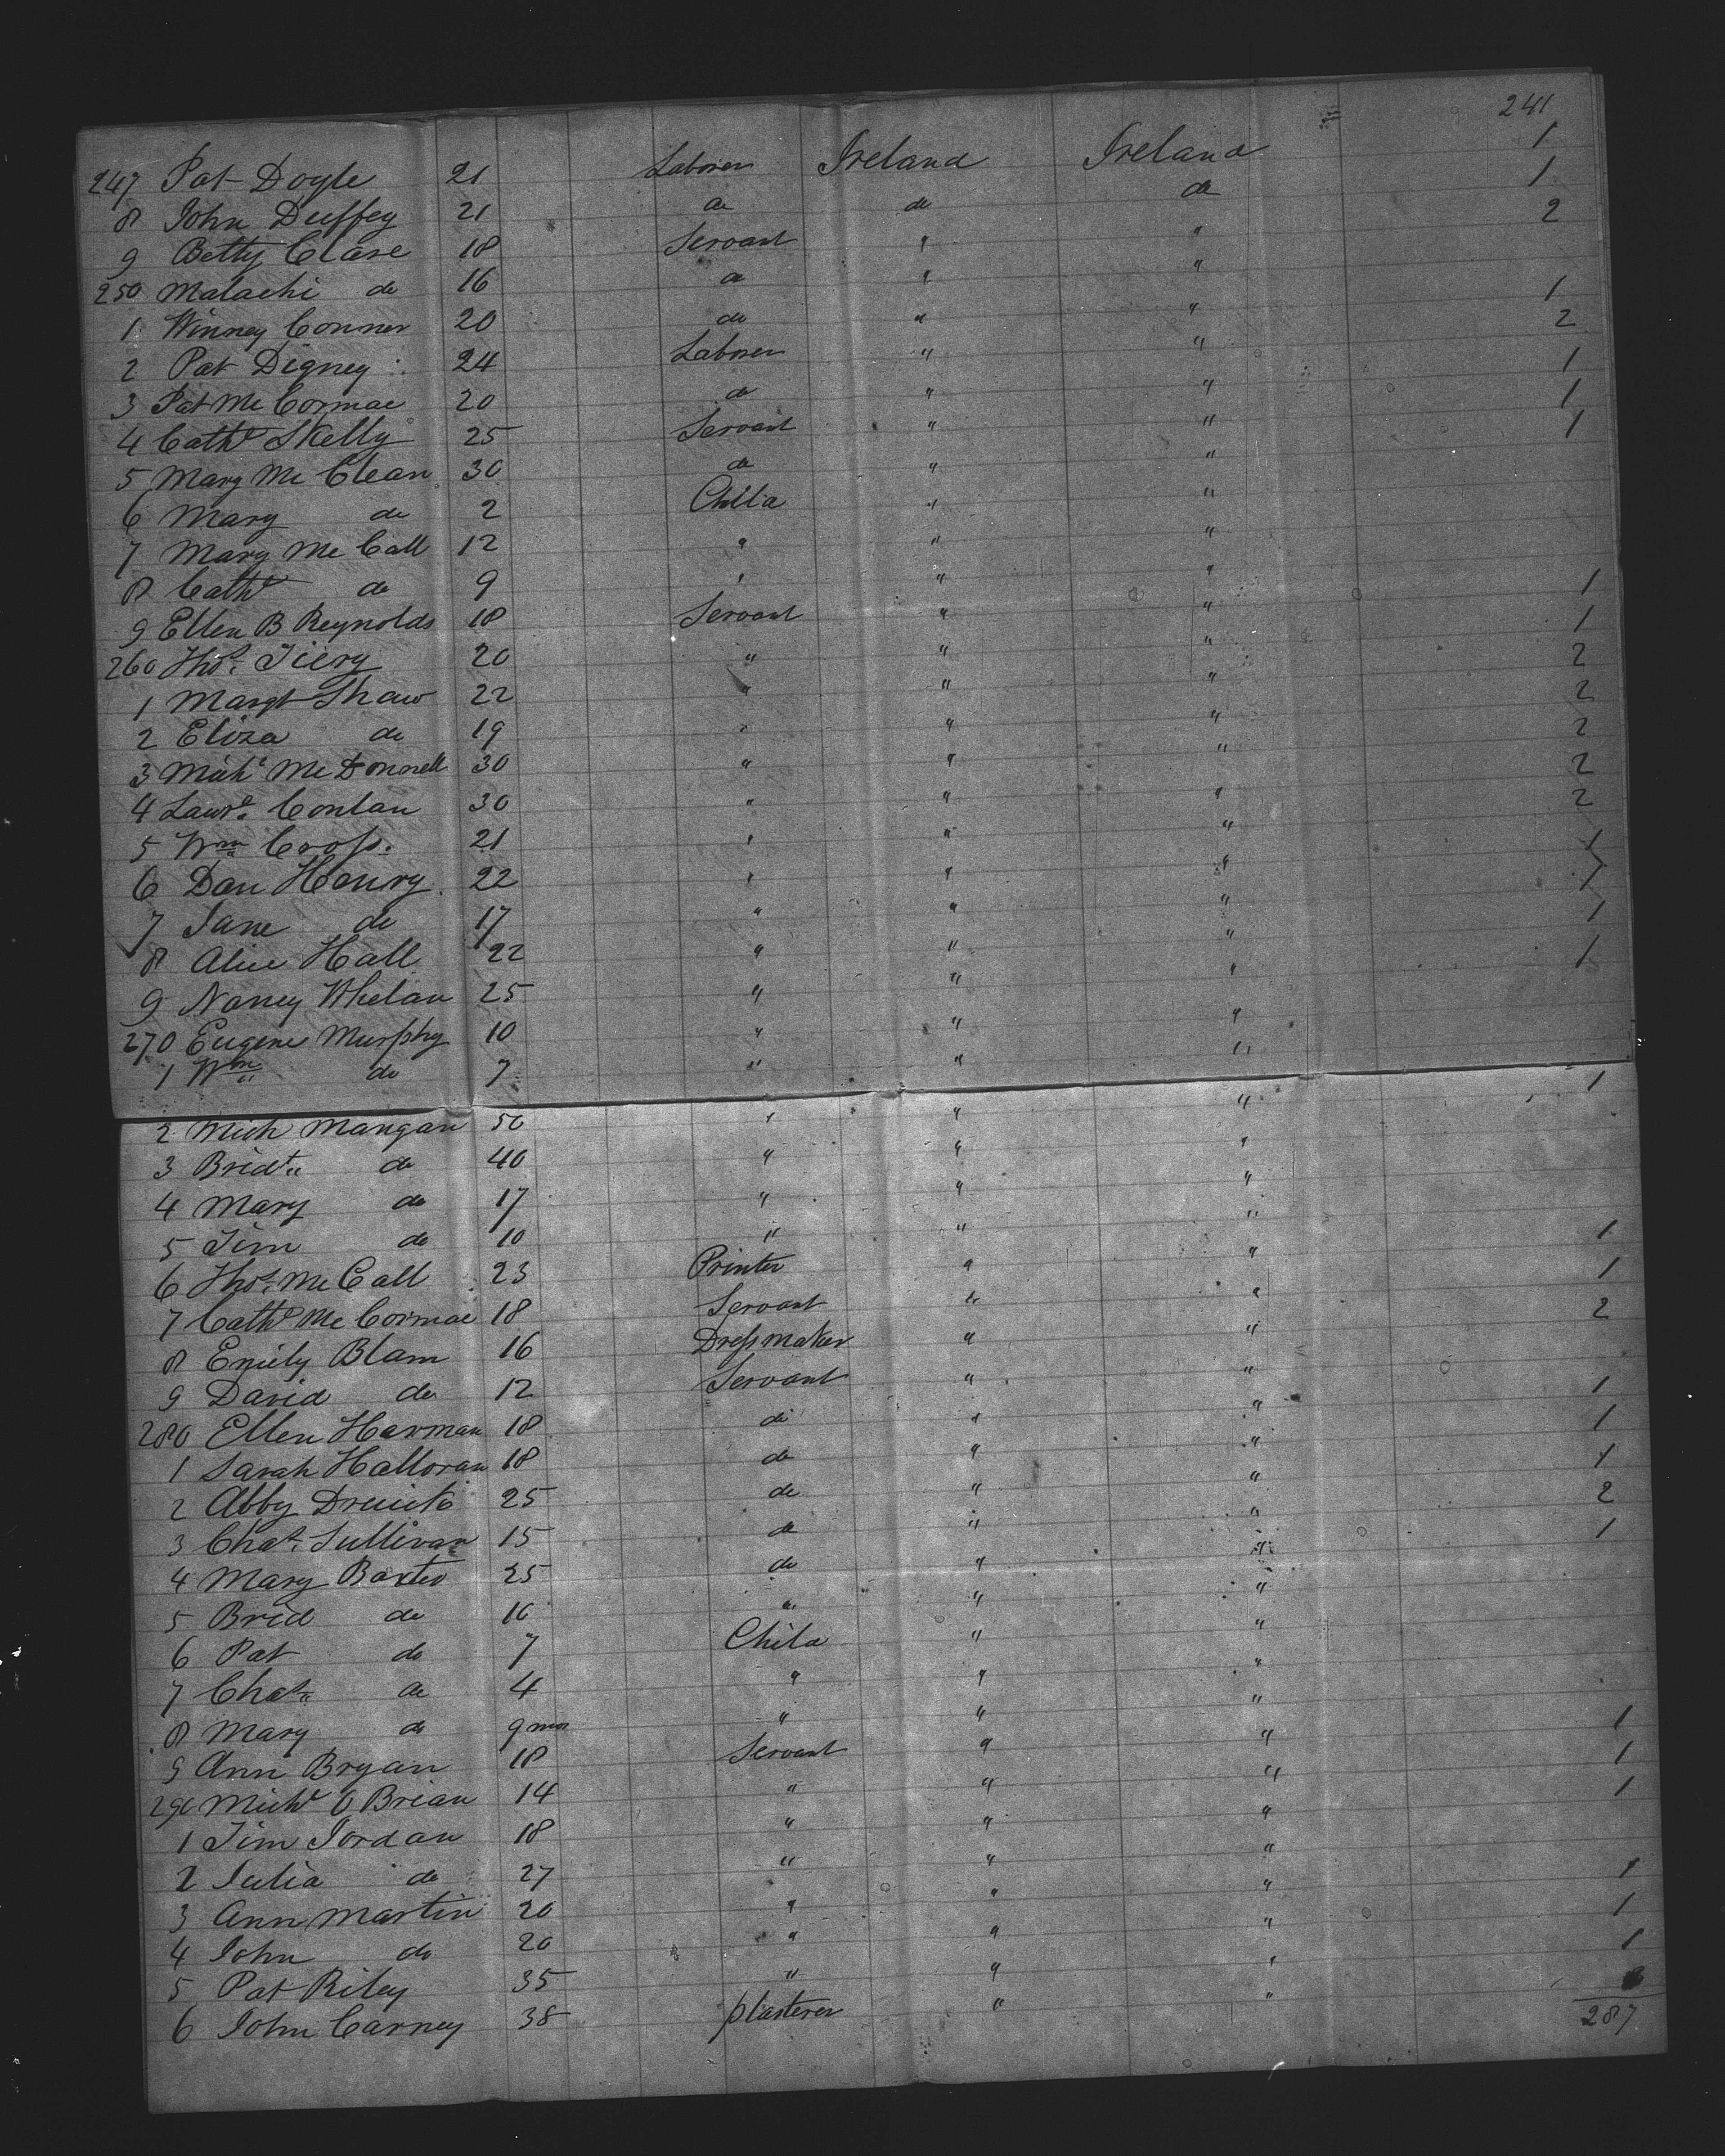 241
247 Pat Doyle 21 Laborer Ireland Ireland 1
8 John Duffey 21 do do do 1
9 Betty Clare 18 Servant " " 2
250 Malachi do 16 do " "
1 Winney Conner 20 do " " 1
2 Pat Digney 24 Laborer " " 2
3 Pat Mc Cormac 20 do " " 1
4 Cathe Skelly 25 Servant " " 1
5 Mary Mc Clean 30 do " " 1
6 Mary do 2 Child " "
7 Mary Mc Call 12 " " "
8 Cathe do 9 " " "
9 Ellen B Reynolds 18 Servant " " 1
260 Thos. Tiery 20 " " " 1
1 Margt Shaw 22 " " " 2
2 Eliza do 19 " " " 2
3 Michl Mc Donnell 30 " " " 2
4 Lawre. Conlan 30 " " " 2
5 Wm Cross. 21 " " " 2
6 Dan Henry 22 " " " 1
7 Jane do 17 " " " 1
8 Alice Hall 22 " " " 1
9 Nancy Whelan 25 " " " 1
270 Eugene Murphy 10 " " "
1 Wm do 7 " " "
2 Mich Mangan 50 " " " 1
3 Bridt do 40 " " "
4 Mary do 17 " " "
5 Jim do 10 " " "
6 Thos. Mc Call 23 Printer " " 1
7 Cathe Mc Cormac 18 Servant " " 1
8 Emily Blam 16 Dressmaker " " 2
9 David do 12 Servant " "
280 Ellen Harman 18 do " " 1
1 Sarah Halloran 18 do " " 1
2 Abby 25 do " " 1
3 Chas. Sullivan 15 do " " 2
4 Mary Baxter 25 do " " 1
5 Brid do 16 " " "
6 Pat do 7 Child " "
7 Chas. do 4 " " "
8 Mary do 9 mos " " "
9 Ann Bryan 18 Servant " " 1
290 Michl O Brian 14 " " " 1
1 Jim Jordan 18 " " " 1
2 Julia do 27 " " "
3 Ann Martin 20 " " " 1
4 John do 20 " " " 1
5 Pat Riley 35 " " " 1
6 John Carney 38 plasterer " "
287